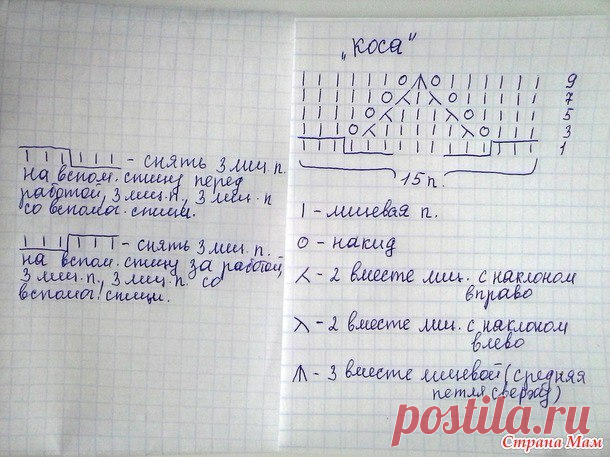 — снять 3 лиц. п.
на вспом. спицу перед
работой, 3 лиц. п., 3 лиц. п
со вспомог. спицы.
— снять 3 лиц. п.
на вспом. спицу за работой,
3 лиц. п., 3 лиц. п. со
вспомог. спицы.
„Коса"
9
7
5
3
1
15 п.
I – лицевая п.
O – накид
⋌ – 2 вместе лиц. с наклоном
вправо
⋋ – 2 вместе лиц. с наклоном
влево
⩚ – 3 вместе лицевой (средняя
петля сверху)
postila.ru
Страна Мам